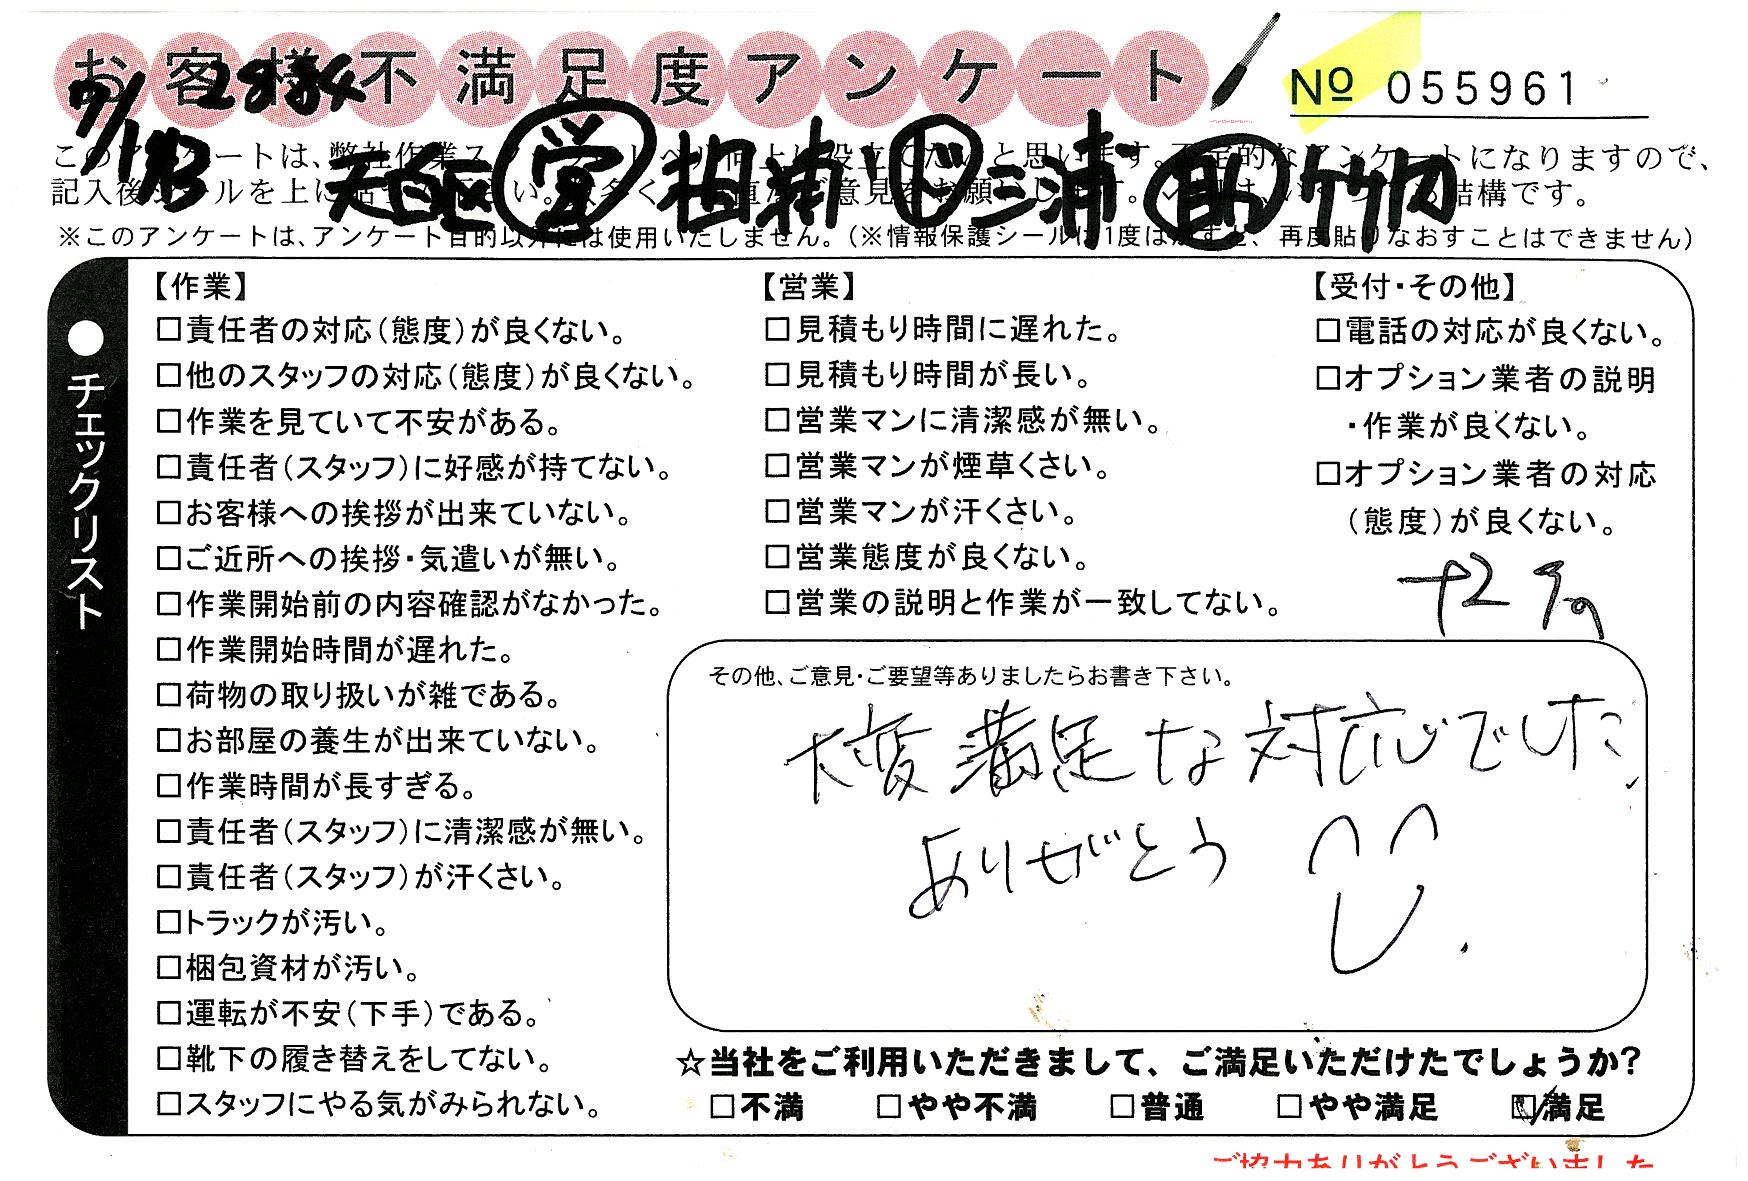 お客様不満足度アンケート
№ 055961
7/13
天白区 営 担 ド三浦 助 竹内
※このアンケートは、アンケート目的以外には使用いたしません。(※情報保護シールは1度はがすと、再度貼りなおすことはできません)
●チェックリスト
【作業】
□責任者の対応(態度)が良くない。
□他のスタッフの対応(態度)が良くない。
□作業を見ていて不安がある。
□責任者(スタッフ)に好感が持てない。
□お客様への挨拶が出来ていない。
□ご近所への挨拶・気遣いが無い。
□作業開始前の内容確認がなかった。
□作業開始時間が遅れた。
□荷物の取り扱いが雑である。
□お部屋の養生が出来ていない。
□作業時間が長すぎる。
□責任者(スタッフ)に清潔感が無い。
□責任者(スタッフ)が汗くさい。
□トラックが汚い。
□梱包資材が汚い。
□運転が不安(下手)である。
□靴下の履き替えをしてない。
□スタッフにやる気がみられない。
【営業】
□見積もり時間に遅れた。
□見積もり時間が長い。
□営業マンに清潔感が無い。
□営業マンが煙草くさい。
□営業マンが汗くさい。
□営業態度が良くない。
□営業の説明と作業が一致してない。
【受付・その他】
□電話の対応が良くない。
□オプション業者の説明
・作業が良くない。
□オプション業者の対応
(態度)が良くない。
その他、ご意見・ご要望等ありましたらお書き下さい。
大変満足な対応でした
ありがとう
☆当社をご利用いただきまして、ご満足いただけたでしょうか?
□不満 □やや不満 □普通 □やや満足 ☑満足
ご協力ありがとうございました